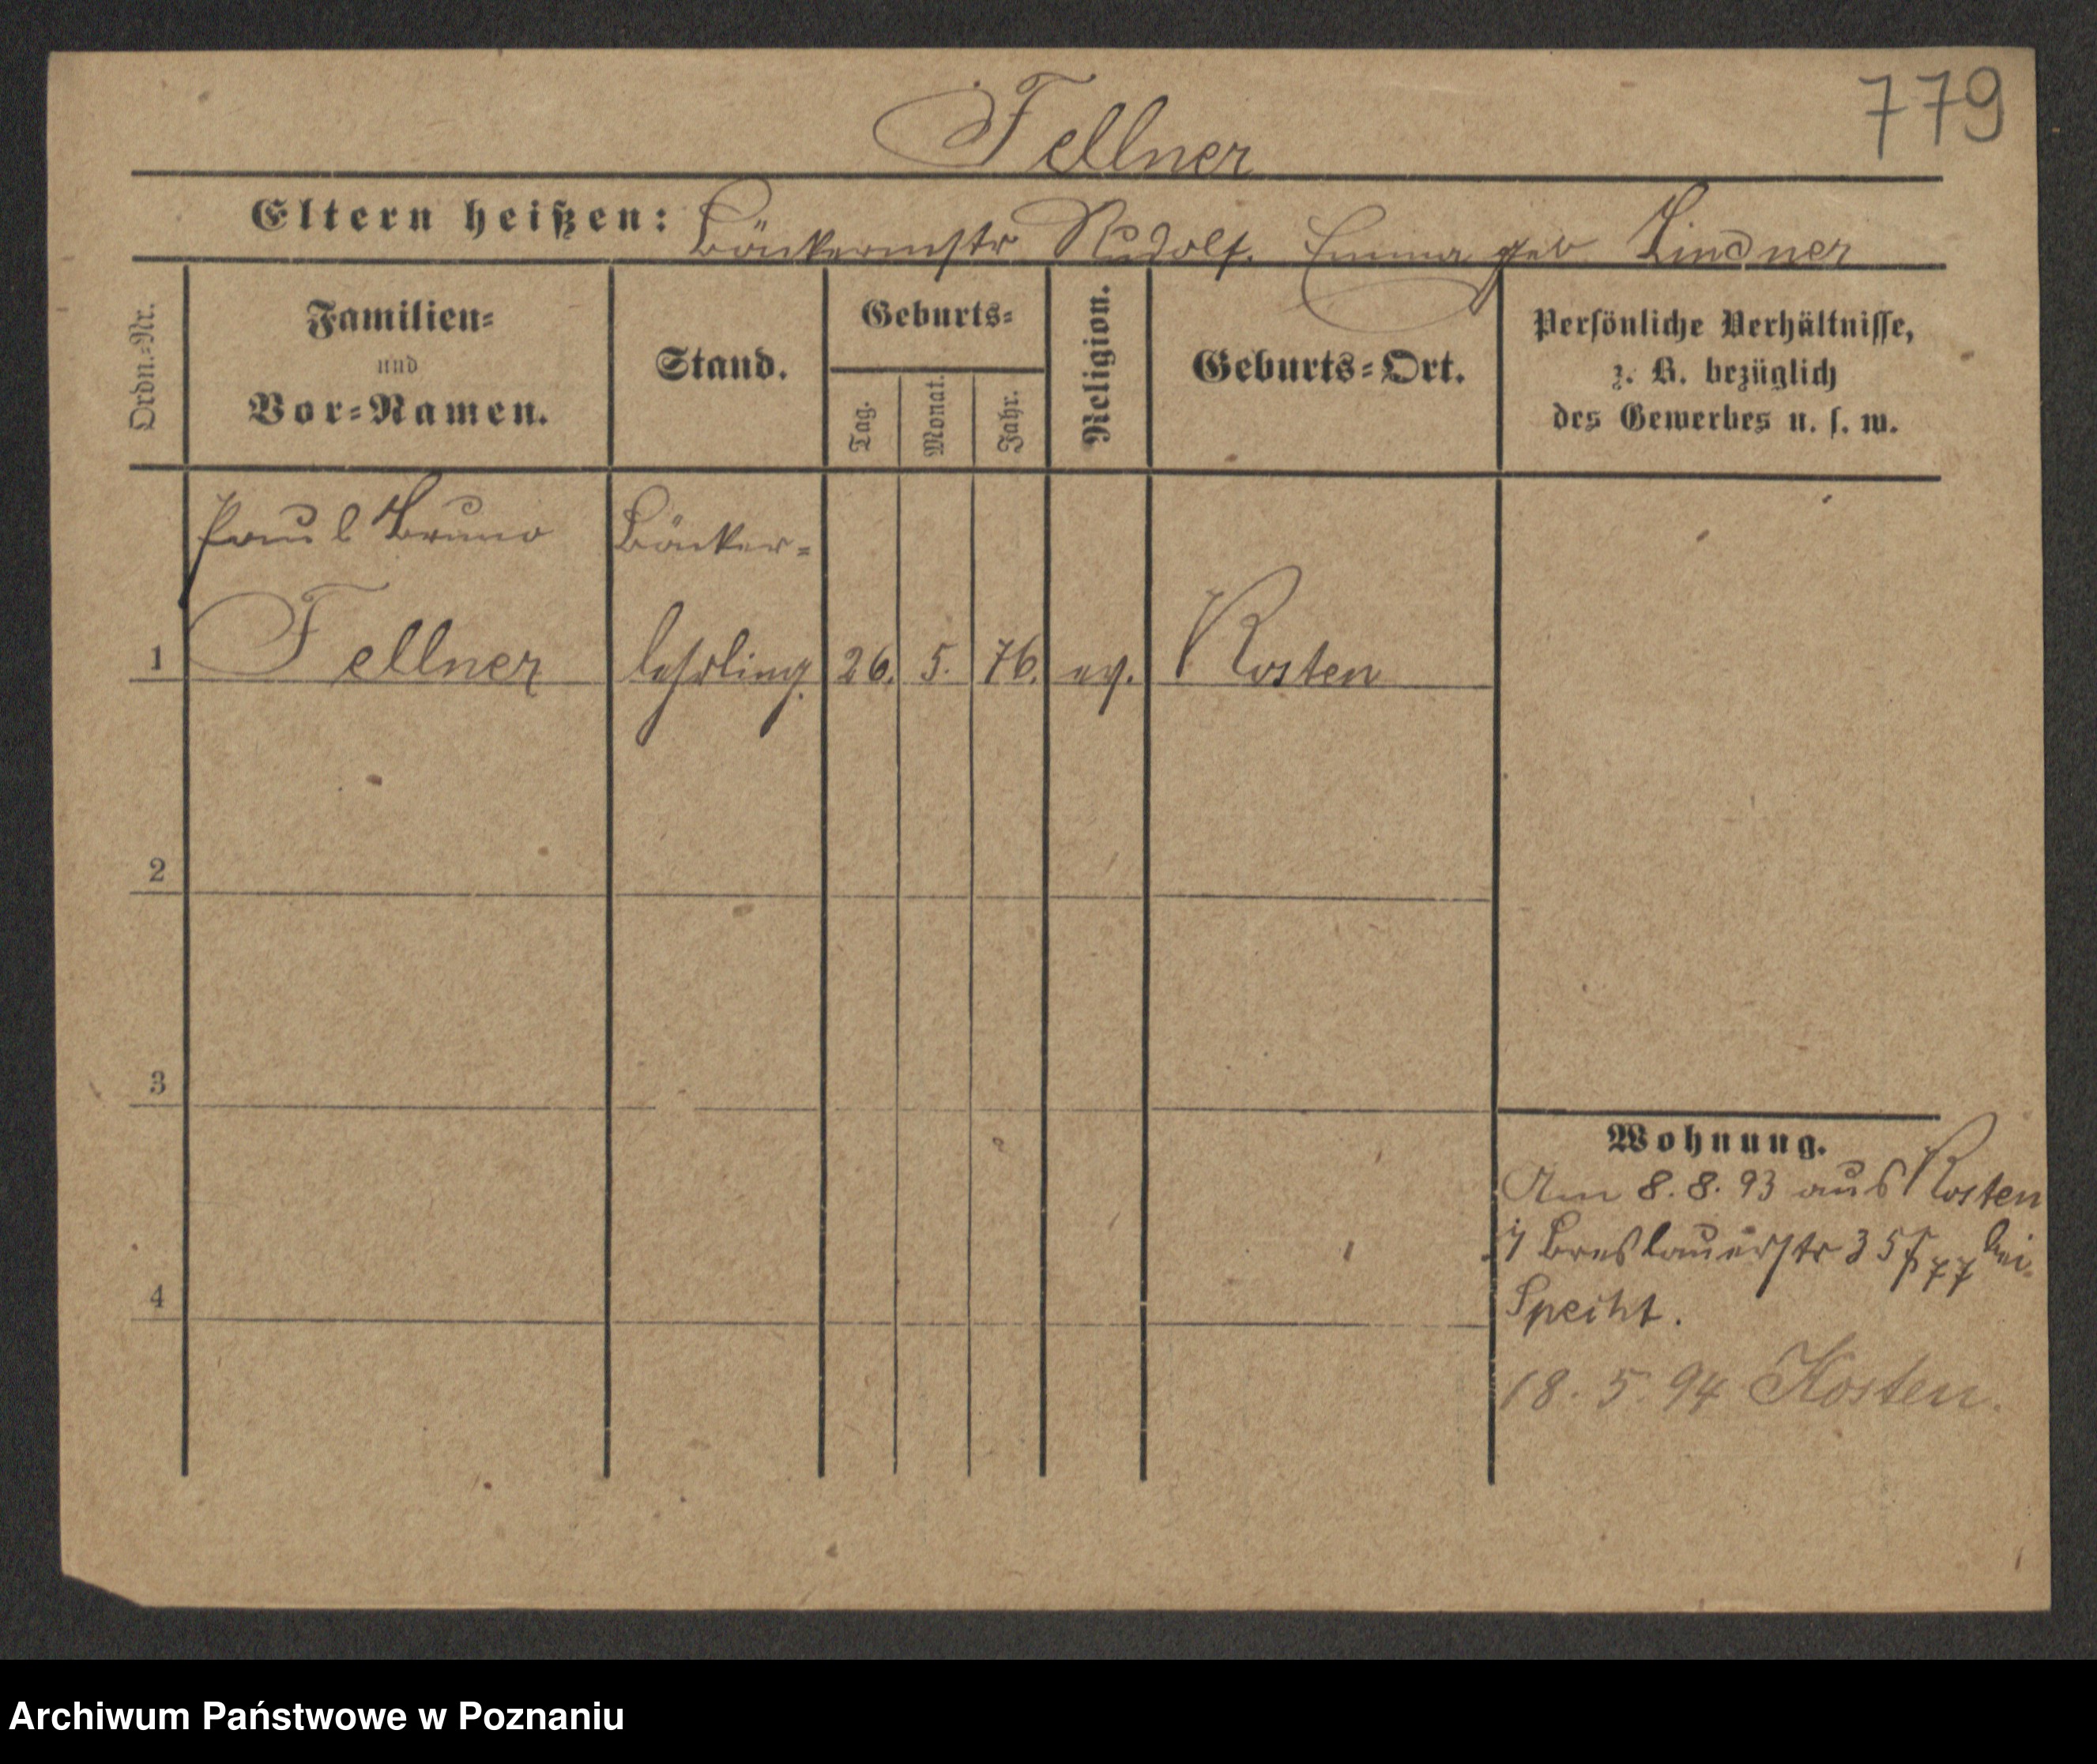 779
Fellner
Eltern heißen: Bäckermstr Rudolf. Emma geb Lindner
Ordn.=Nr.
Familien=
und
Vor=Namen.
Stand.
Geburts=
Tag.
Monat.
Jahr.
Religion.
Geburts=Ort.
Persönliche Verhältnisse,
z. B. bezüglich
des Gewerbes u. s. w.
Paul Bruno Bäcker=
1 Fellner lehrling. 26. 5. 76. ev. Kosten
2
3
4
Wohnung.
Am 8.8.93 aus Kosten
Breslauerstr 35 bei
Specht.
18.5.94 Kosten.
Archiwum Państwowe w Poznaniu